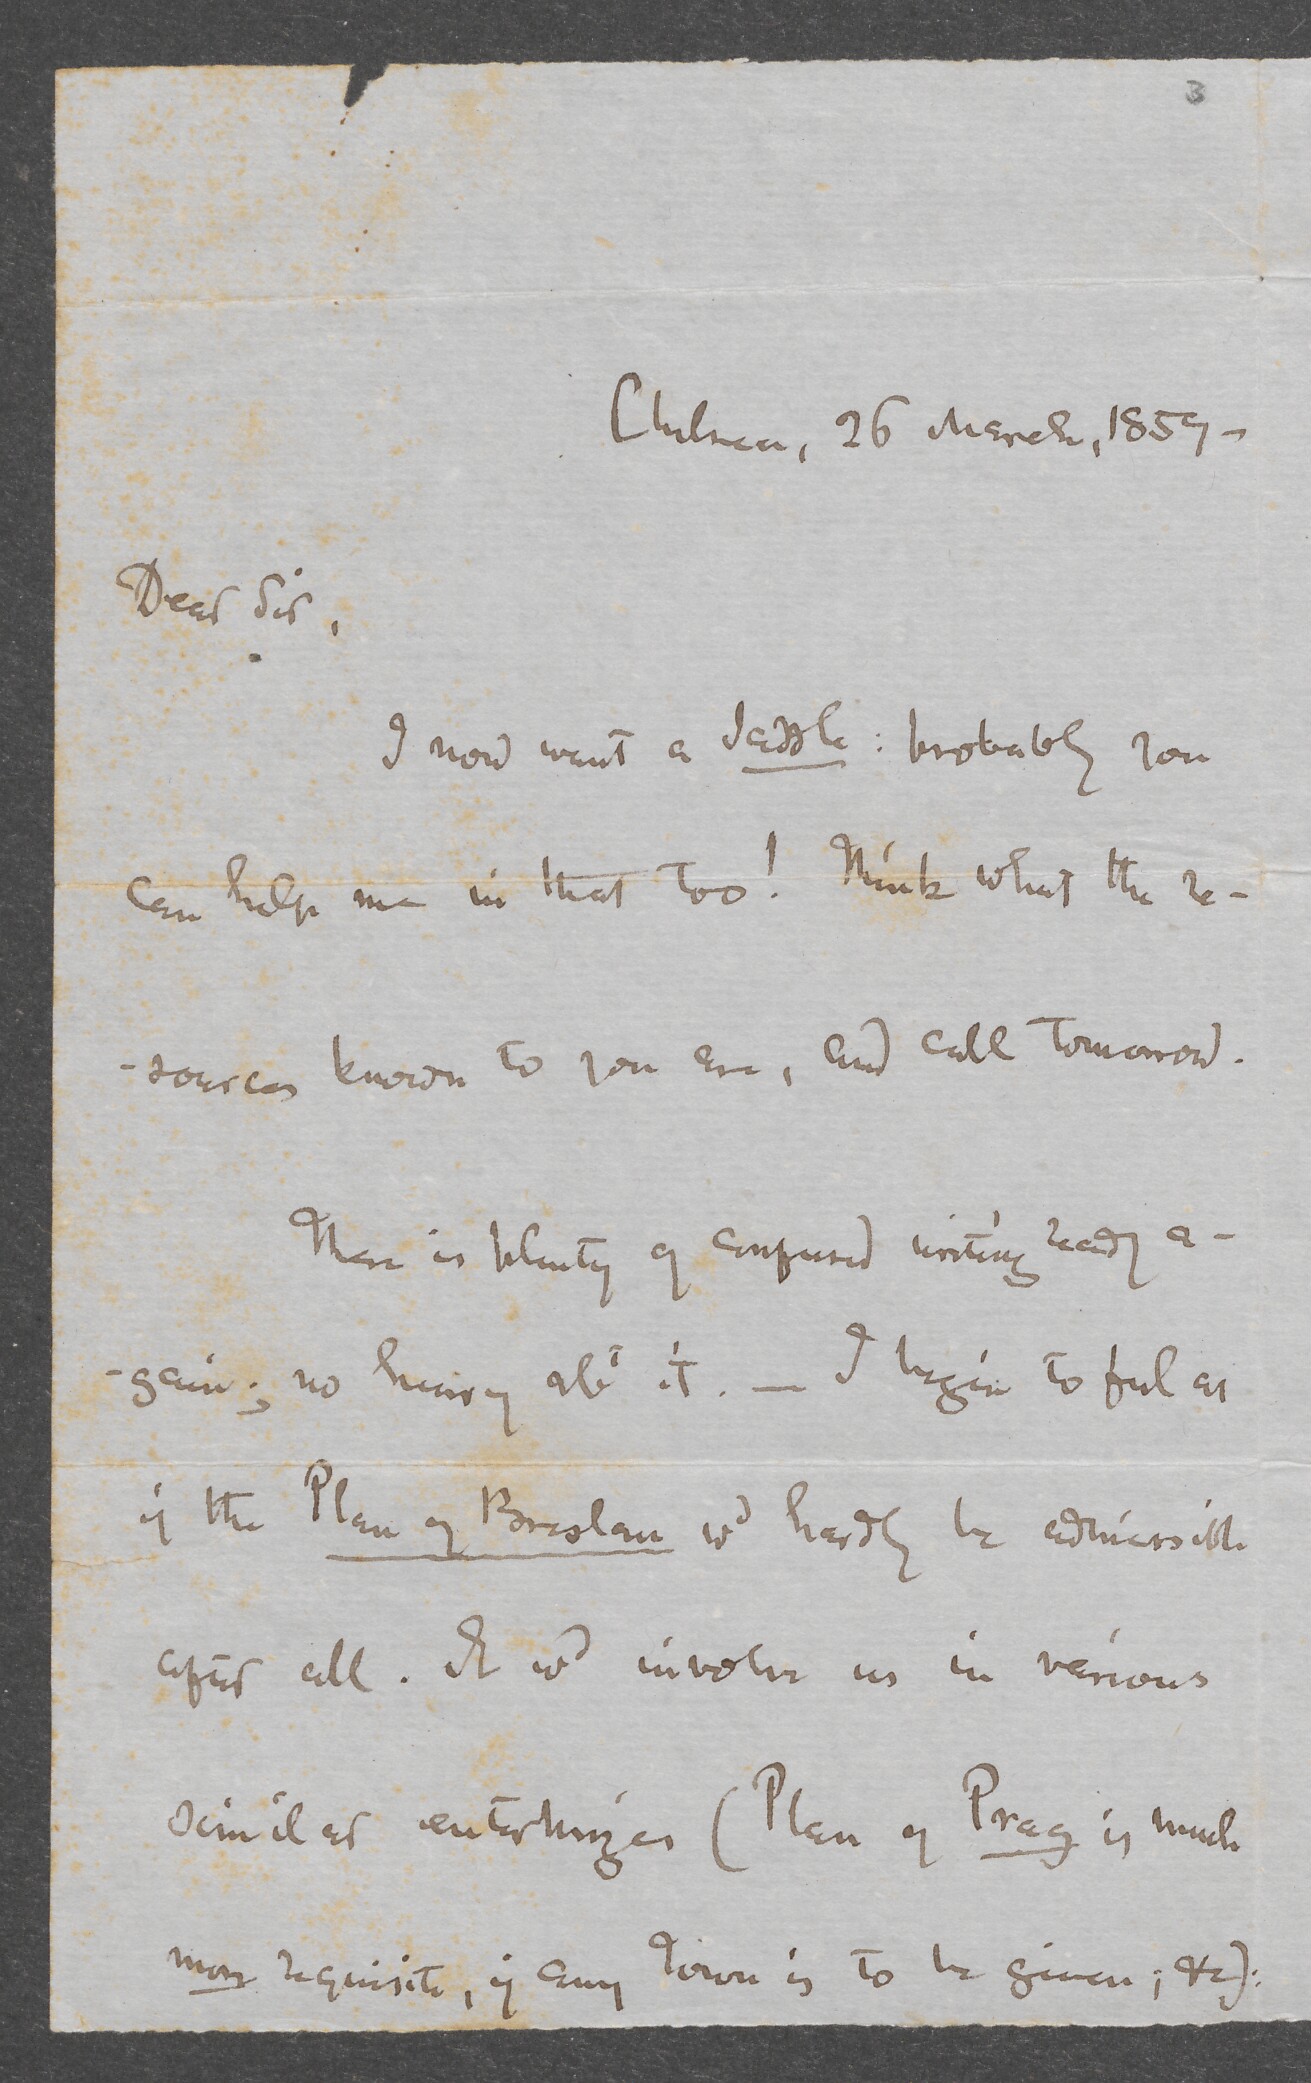 3
Chelsea, 26 March, 1859 -
Dear Sir,
I now want a saddle: probably you
can help me in that too! Think what the re-
-sources known to you are, and call tomorrow.
There is plenty of confused writing ready a-
-gain; no hurry abt it. — I begin to feel as
if the Plan of Breslau wd hardly be admissible
after all. It wd involve us in various
similar enterprizes (Plan of Prag is much
more requisite, if any Town is to be given; &c):